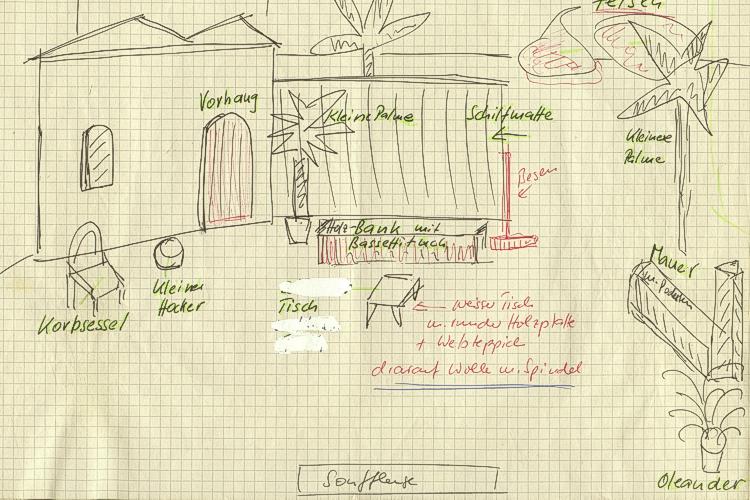 Felsen
Vorhang
Kleine Palme
Schilfmatte
Kleinere
Palme
Besen
Holz-Bank mit
Bassetti tuch
Mauer
Kleiner
Hocker
Korbsessel
Tisch
weisser Tisch
m. runder Holzplatte
+ Webteppich
darauf Wolle m. Spindel
Souffleuse
Oleander